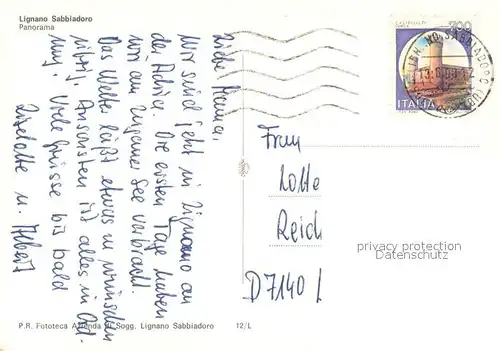 Lignano Sabbiadoro
Panorama
Liebe Mama,
Wir sind jetzt in Lignano an
der Adria. Die ersten Tage haben
wir am Luganer See verbracht.
Das Wetter läßt etwas zu wünschen
übrig. Ansonsten ist alles in Ord-
nung. Viele Grüsse bis bald
Liselotte u. Albert
ITALIA
Frau
Lotte
Reich
D7140 L
privacy protection
Datenschutz
P.R. Fototeca Azienda di Sogg. Lignano Sabbiadoro
12/L